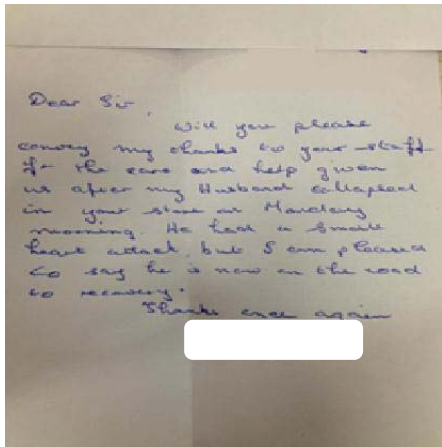 Dear Sir,
Will you please
convey my thanks to your staff
for the care and help given
us after my Husband collapsed
in your store on Monday
morning. He had a small
heart attack, but I am pleased
to say he is now on the road
to recovery.
Thanks once again